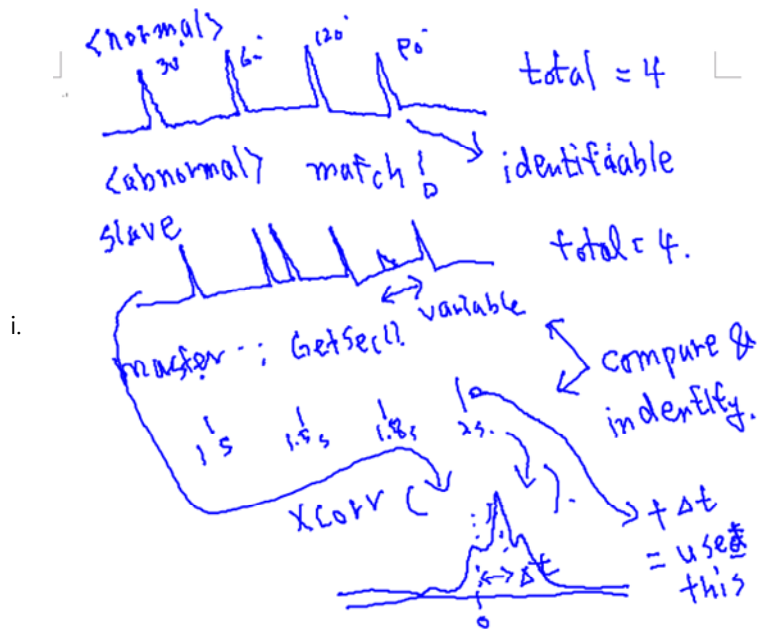 <normal>
120
total = 4
<abnormal> match!
identifiable
slave
total = 4.
variable
i.
master : GetSec()
compare &
indentify.
1s 1.5s 1.8s 2s.
xcorr ( ).
+ Δt
= used
this
Δt
0